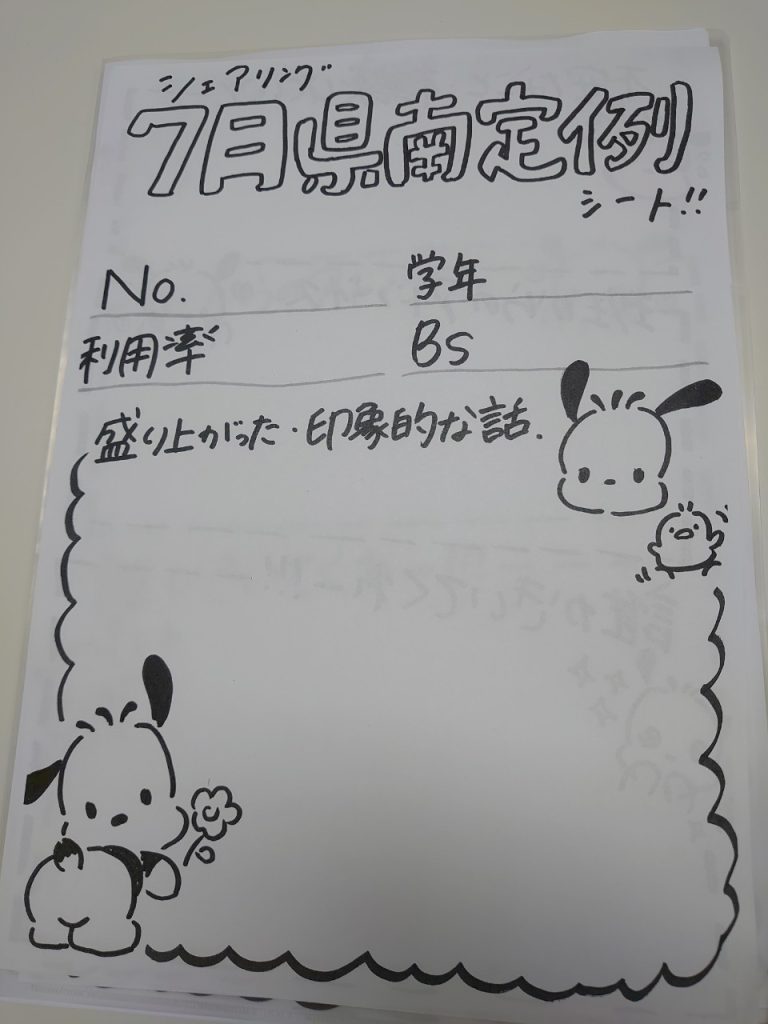 シェアリング
7月県南定例
シート!!
No. 学年
利用率 BS
盛り上がった・印象的な話.